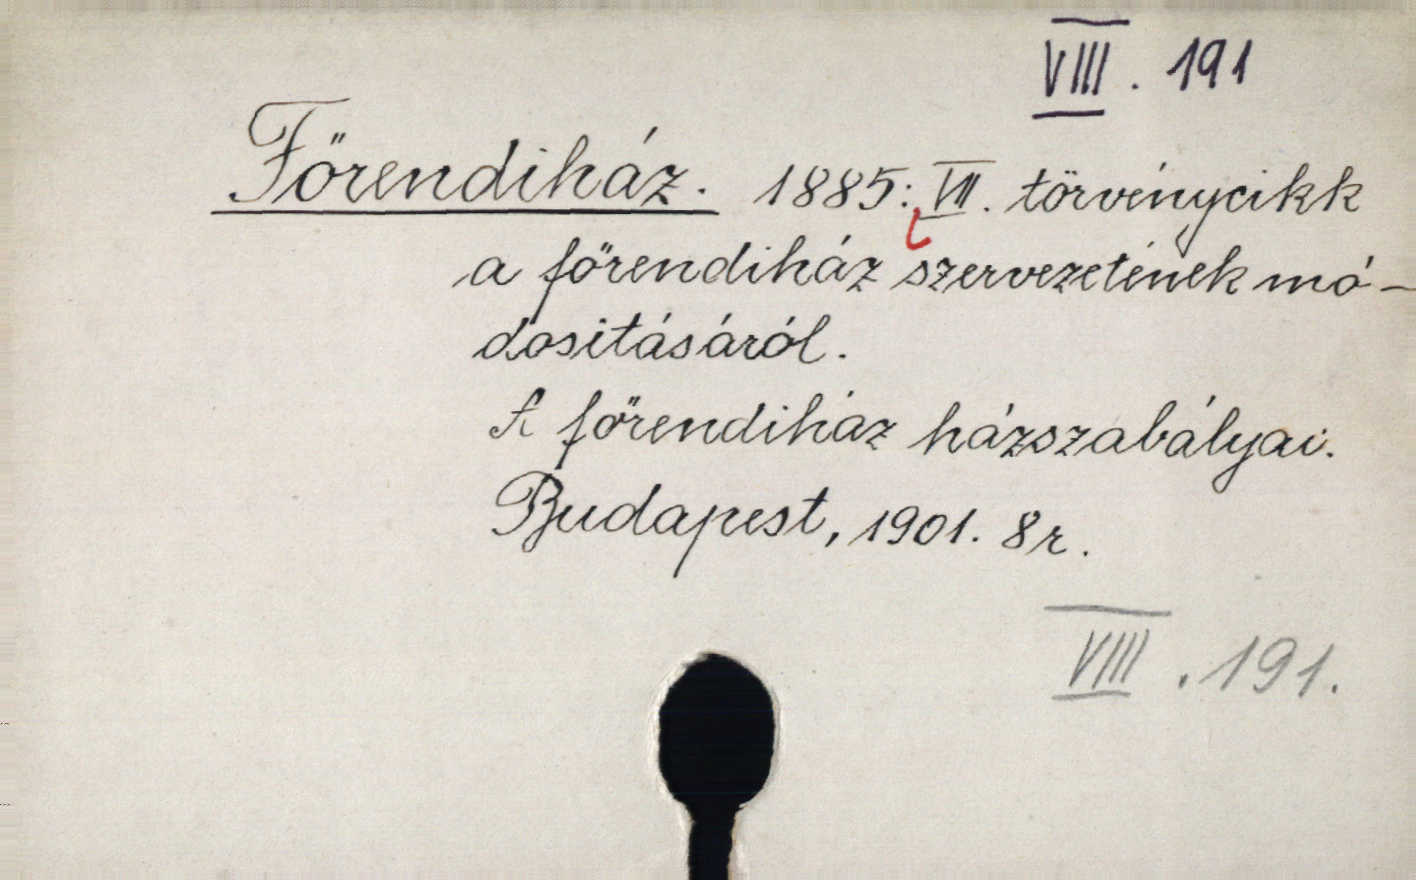 VIII. 191
Főrendiház. 1885: VII. törvénycikk
a főrendiház szervezetének mó-
dositásáról.
A főrendiház házszabályai.
Budapest, 1901. 8r.
VIII. 191.